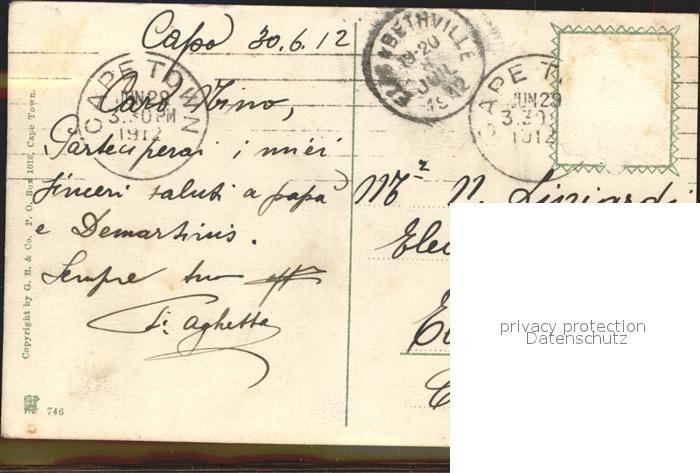 Capo 30.6.12
Caro Nino,
Parteciperai i miei
sinceri saluti a papà
e Demartinis.
Sempre tuo aff
Aghetta
CAPE TOWN
JUN 29
3.30 PM
1912
ELISABETHVILLE
19-20
JUIL
1912
CAPE T
JUN 29
3.30
1912
Mr N.
Elec
Copyright by G. B. & Co. P. O. Box 1018, Cape Town.
746
privacy protection
Datenschutz